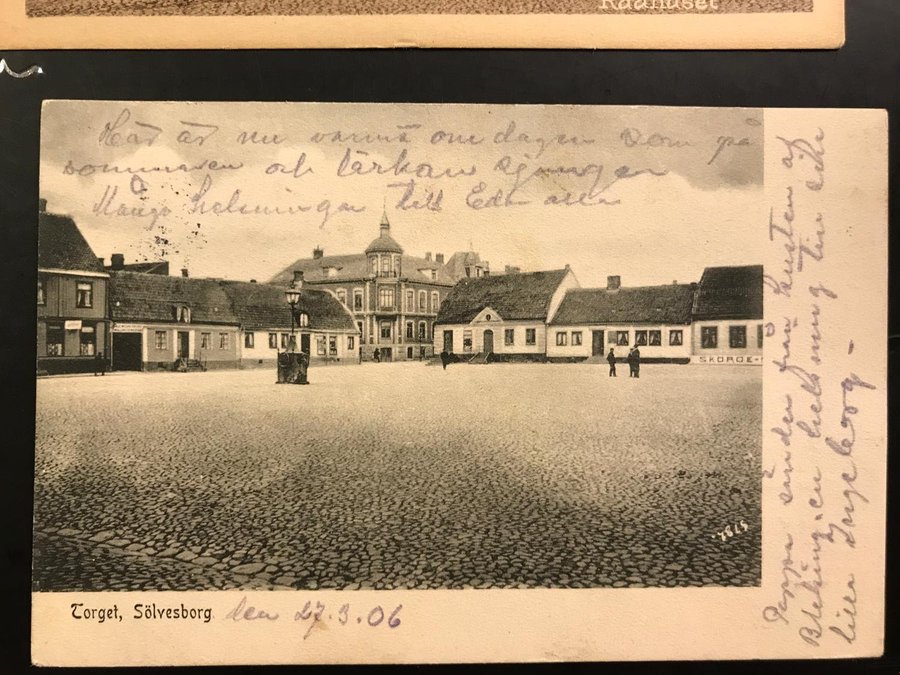 Rådhuset
Här är nu varmt om dagen som på
sommaren och lärkan sjunger
Många helsningar till Eder alla
SKORDE
5782.
Torget, Sölvesborg. den 27.3.06
Pappa sänder från kusten af
Bleking en helsning till sin
lilla Ingeborg –